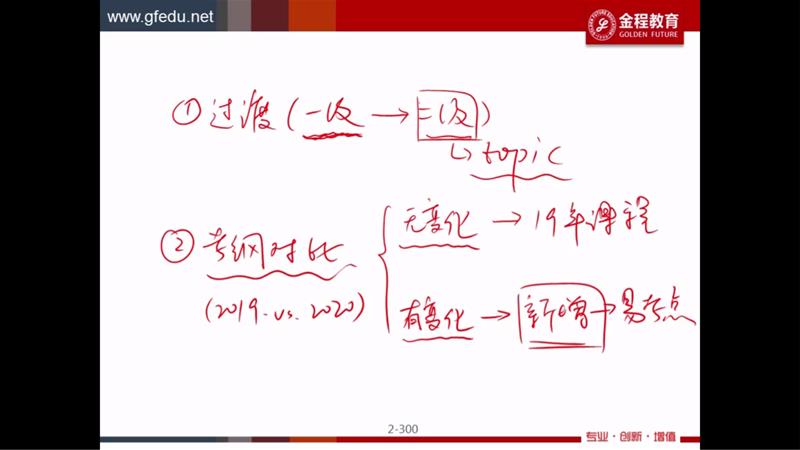 www.gfedu.net
金程教育
GOLDEN FUTURE
①过渡(一级→二级)
↳topic
无变化→19年课程
②考纲对比
(2019 vs. 2020)
有变化→新增→易考点
2-300
专业·创新·增值